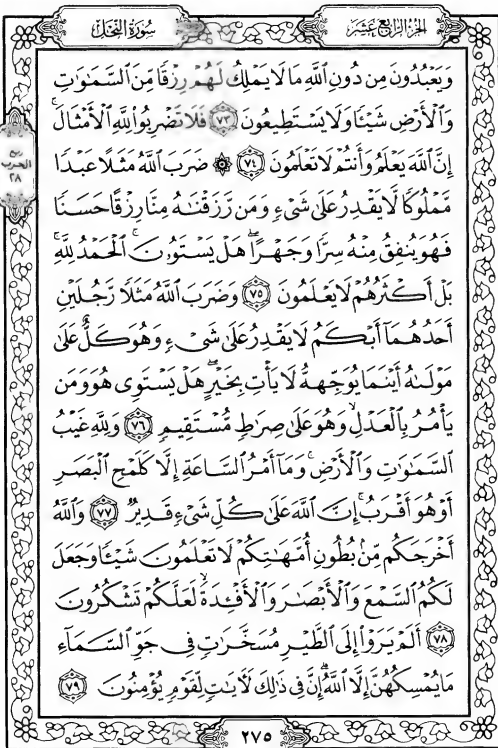 الجزء الرابع عشر
سورة النحل
وَيَعْبُدُونَ مِن دُونِ اللَّهِ مَا لَا يَمْلِكُ لَهُمْ رِزْقًا مِّنَ السَّمَٰوَٰتِ
وَالْأَرْضِ شَيْئًا وَلَا يَسْتَطِيعُونَ ٧٣ فَلَا تَضْرِبُوا لِلَّهِ الْأَمْثَالَ ۚ
إِنَّ اللَّهَ يَعْلَمُ وَأَنتُمْ لَا تَعْلَمُونَ ٧٤ ۞ ضَرَبَ اللَّهُ مَثَلًا عَبْدًا
مَّمْلُوكًا لَّا يَقْدِرُ عَلَىٰ شَيْءٍ وَمَن رَّزَقْنَٰهُ مِنَّا رِزْقًا حَسَنًا
فَهُوَ يُنفِقُ مِنْهُ سِرًّا وَجَهْرًا ۖ هَلْ يَسْتَوُۥنَ ۚ الْحَمْدُ لِلَّهِ ۚ
بَلْ أَكْثَرُهُمْ لَا يَعْلَمُونَ ٧٥ وَضَرَبَ اللَّهُ مَثَلًا رَّجُلَيْنِ
أَحَدُهُمَا أَبْكَمُ لَا يَقْدِرُ عَلَىٰ شَيْءٍ وَهُوَ كَلٌّ عَلَىٰ
مَوْلَىٰهُ أَيْنَمَا يُوَجِّههُّ لَا يَأْتِ بِخَيْرٍ ۖ هَلْ يَسْتَوِي هُوَ وَمَن
يَأْمُرُ بِالْعَدْلِ ۙ وَهُوَ عَلَىٰ صِرَٰطٍ مُّسْتَقِيمٍ ٧٦ وَلِلَّهِ غَيْبُ
السَّمَٰوَٰتِ وَالْأَرْضِ ۚ وَمَا أَمْرُ السَّاعَةِ إِلَّا كَلَمْحِ الْبَصَرِ
أَوْ هُوَ أَقْرَبُ ۚ إِنَّ اللَّهَ عَلَىٰ كُلِّ شَيْءٍ قَدِيرٌ ٧٧ وَاللَّهُ
أَخْرَجَكُم مِّنۢ بُطُونِ أُمَّهَٰتِكُمْ لَا تَعْلَمُونَ شَيْئًا وَجَعَلَ
لَكُمُ السَّمْعَ وَالْأَبْصَٰرَ وَالْأَفْـِٔدَةَ ۙ لَعَلَّكُمْ تَشْكُرُونَ
٧٨ أَلَمْ يَرَوْا إِلَى الطَّيْرِ مُسَخَّرَٰتٍ فِي جَوِّ السَّمَآءِ
مَا يُمْسِكُهُنَّ إِلَّا اللَّهُ ۗ إِنَّ فِي ذَٰلِكَ لَءَايَٰتٍ لِّقَوْمٍ يُؤْمِنُونَ ٧٩
ربع
الحزب
٢٨
٢٧٥